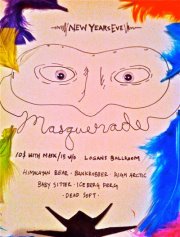 NEW YEARS EVE
Masquerade
10$ WITH MASK/15 W/O LOGANS BALLROOM
HIMALAYAN BEAR · BANKROBBER · HIGH ARCTIC
BABY SITTER · ICEBERG FERG
· DEAD SOFT ·